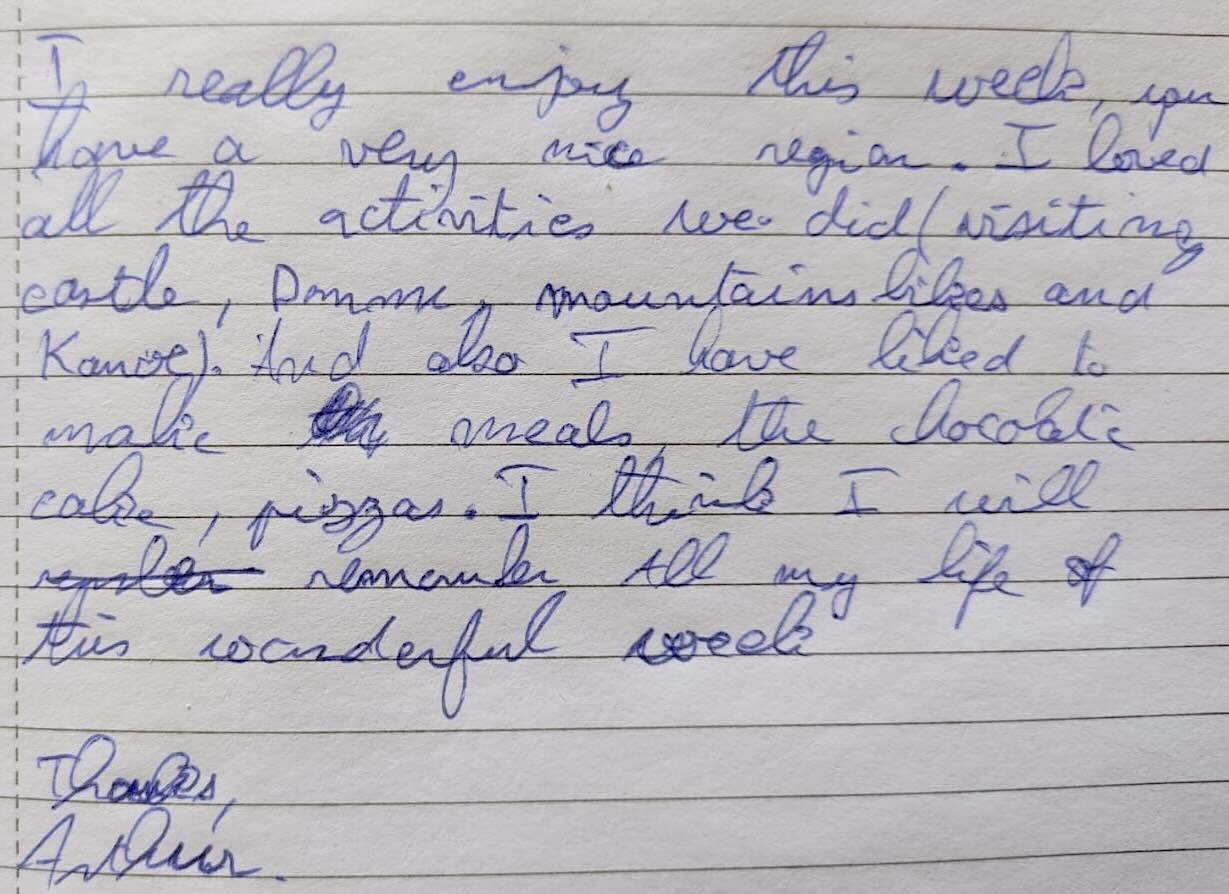 I really enjoy this week, you
have a very nice region. I loved
all the activities we did (visiting
castle, Domme, mountains bikes and
Kanoe). And also I have liked to
make meals, the chocolate
cake, pizzas. I think I will
remember all my life of
this wonderful week
Thanks,
Arthur.